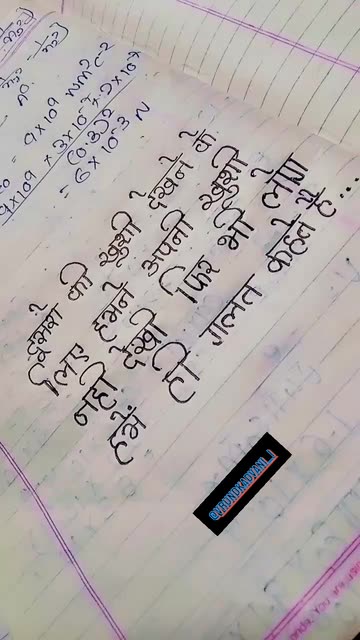 = 9×10⁹ Nm²c⁻²
9×10⁹ × 3×10⁻⁷ × 2×10⁻⁷
(0.3)²
= 6×10⁻³ N
दूसरों की खुशी देखने के
लिए हमने अपनी खुशी
नहीं देखी फिर भी लोग
हमें ही गलत कहते हैं...